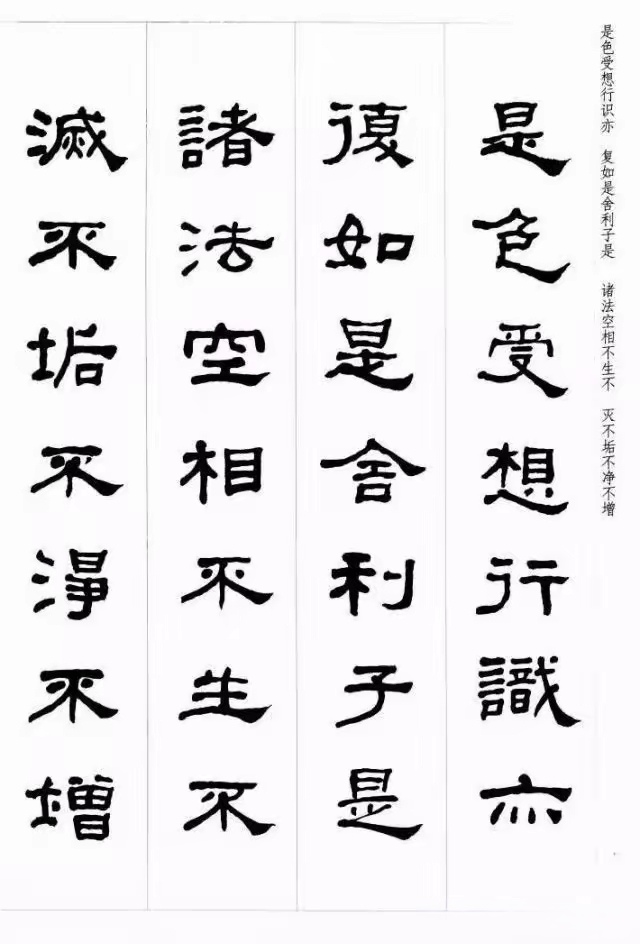 是色受想行识亦 复如是舍利子是 诸法空相不生不 灭不垢不净不增
是色受想行識亦
復如是舍利子是
諸法空相不生不
滅不垢不淨不增